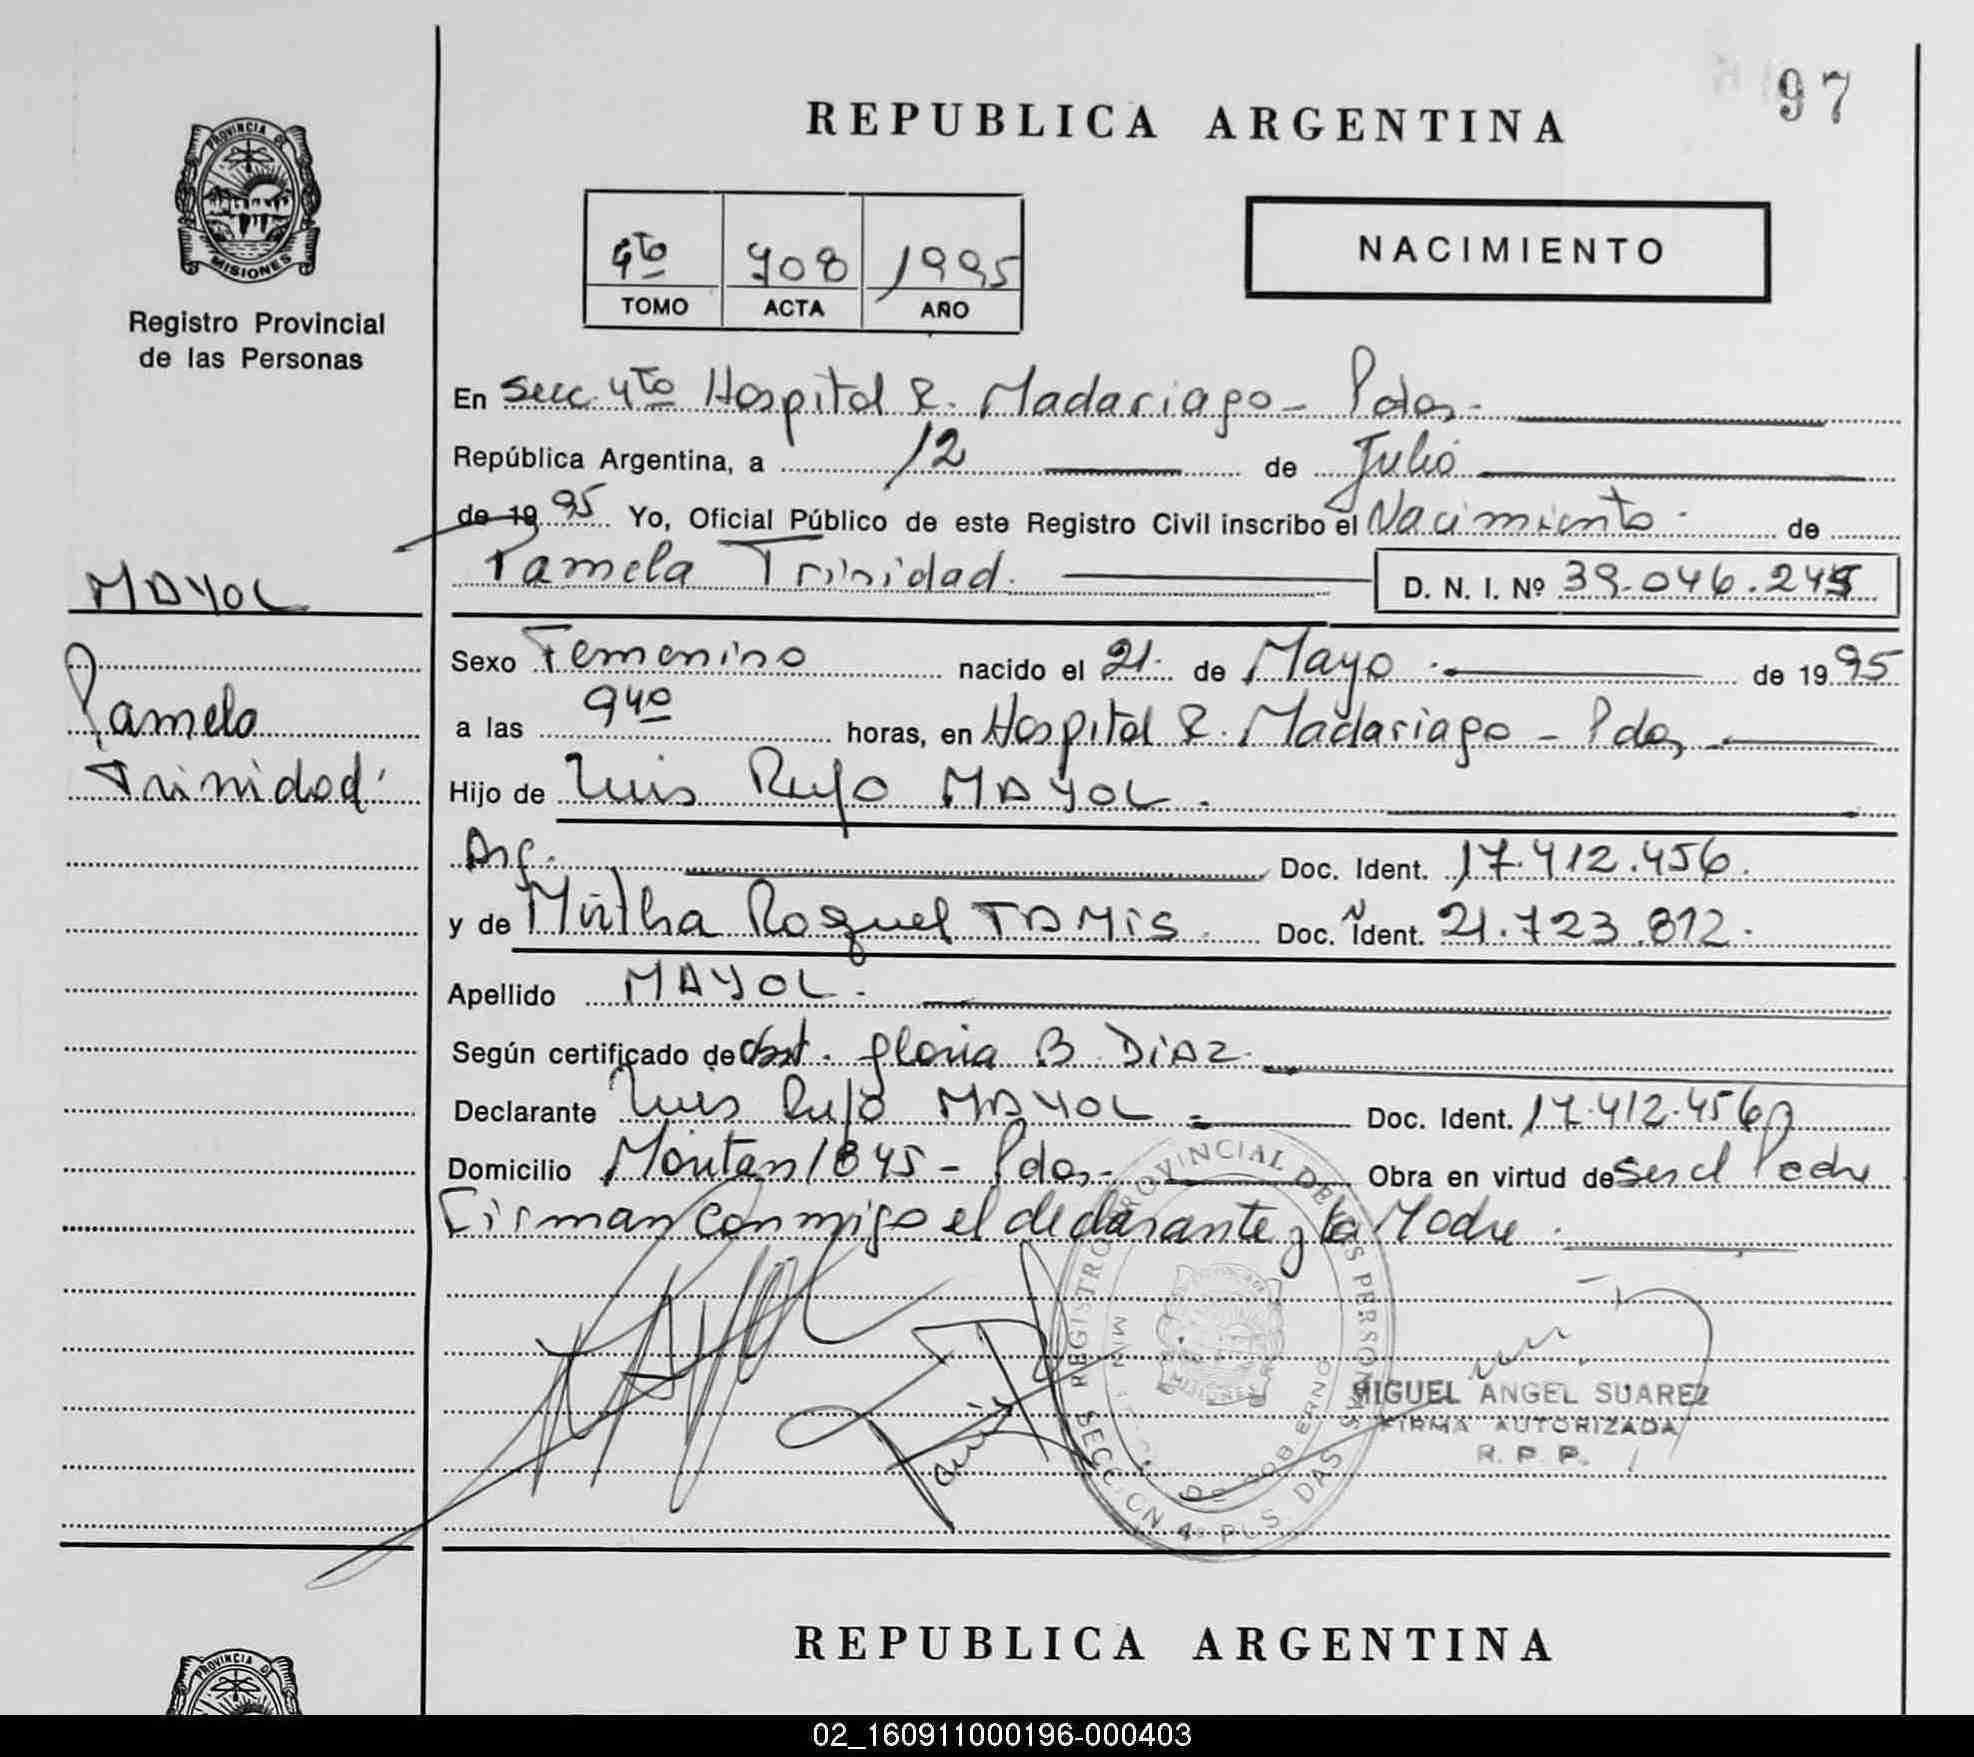 97
REPUBLICA ARGENTINA
PROVINCIA DE
MISIONES
Registro Provincial
de las Personas
4to 908 1995
TOMO ACTA AÑO
NACIMIENTO
En Secc. 4to Hospital R. Madariaga - Pdas.
República Argentina, a 12 de Julio
de 1995 Yo, Oficial Público de este Registro Civil inscribo el Nacimiento de
Pamela Trinidad. D. N. I. Nº 39.046.245
MAYOL
Pamela
Trinidad
Sexo Femenino nacido el 21. de Mayo de 1995
a las 940 horas, en Hospital R. Madariaga - Pdas
Hijo de Luis Rufo MAYOL.
Arg. Doc. Ident. 17.412.456.
y de Mirtha Raquel TAMIS. Doc. Ident. 21.723.812.
Apellido MAYOL.
Según certificado de Obst. Gloria B. DIAZ.
Declarante Luis Rufo MAYOL Doc. Ident. 17.412.456
Domicilio 1845 - Pdas. Obra en virtud de Ser el Padre
Firman conmigo el declarante y la Madre.
REGISTRO PROVINCIAL DE LAS PERSONAS
SECCION 4º PUS DAS
DE GOBIERNO
MISIONES
Tamis
MIGUEL ANGEL SUAREZ
FIRMA AUTORIZADA
R. P. P.
REPUBLICA ARGENTINA
PROVINCIA DE
02_160911000196-000403